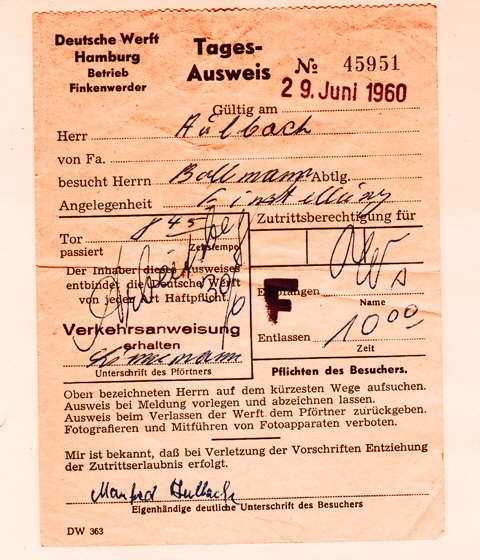 Deutsche Werft
Hamburg
Betrieb
Finkenwerder
Tages-
Ausweis
№ 45951
29. Juni 1960
Gültig am
Herr Aulbach
von Fa.
besucht Herrn Bollmann Abtlg.
Angelegenheit Einstellung
Tor 8 45
passiert Zeitstempel
Zutrittsberechtigung für
Der Inhaber dieses Ausweises
entbindet die Deutsche Werft
von jeder Art Haftpflicht.
Verkehrsanweisung
erhalten
Unterschrift des Pförtners
F
Empfangen
Name
Entlassen 10 00
Zeit
Pflichten des Besuchers.
Oben bezeichneten Herrn auf dem kürzesten Wege aufsuchen.
Ausweis bei Meldung vorlegen und abzeichnen lassen.
Ausweis beim Verlassen der Werft dem Pförtner zurückgeben.
Fotografieren und Mitführen von Fotoapparaten verboten.
Mir ist bekannt, daß bei Verletzung der Vorschriften Entziehung
der Zutrittserlaubnis erfolgt.
Manfred Aulbach
Eigenhändige deutliche Unterschrift des Besuchers
DW 363